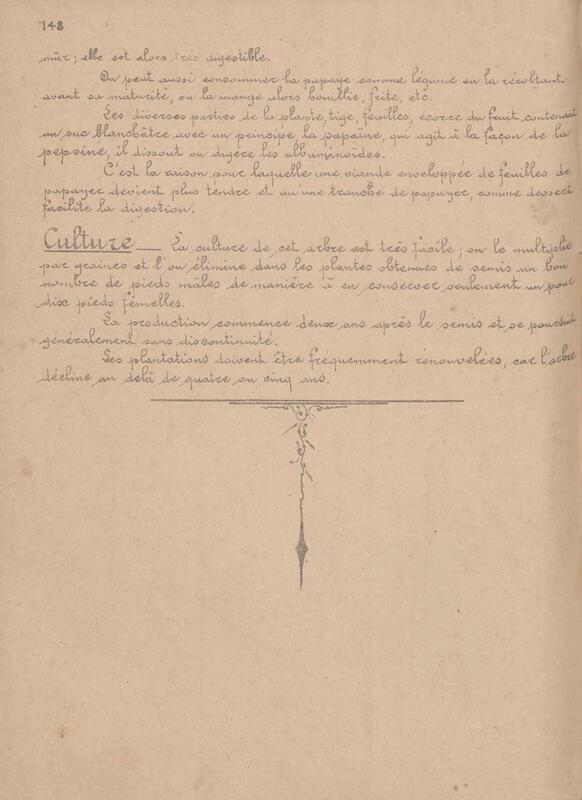 148
mûr ; elle est alors très digestible.
On peut aussi consommer la papaye comme légume en la récoltant
avant sa maturité, on la mange alors bouillie, frite, etc.
Les diverses parties de la plante, tige, feuilles, écorce du fruit contenant
un suc blanchâtre avec un principe la papaïne, qui agit à la façon de la
pepsine, il dissout ou digère les albuminoïdes.
C'est la raison pour laquelle une viande enveloppée de feuilles de
papayer devient plus tendre et qu'une tranche de papayer, comme dessert
facilite la digestion.
Culture — La culture de cet arbre est très facile ; on le multiplie
par graines et l'on élimine dans les plantes obtenues de semis un bon
nombre de pieds mâles de manière à en conserver seulement un pour
dix pieds femelles.
La production commence deux ans après le semis et se poursuit
généralement sans discontinuité.
Les plantations doivent être fréquemment renouvelées, car l'arbre
décline au delà de quatre ou cinq ans.